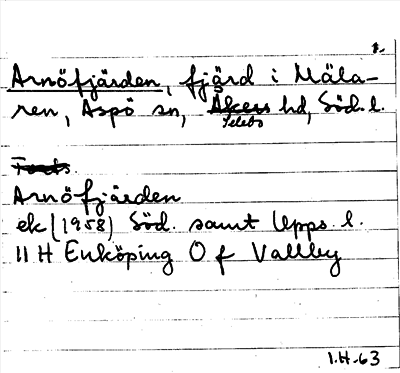 1.
Arnöfjärden, fjärd i Mäla-
ren, Aspö sn, Åkers hd, Söd. l.
Selebo
Forts.
Arnöfjärden
ek (1958) Söd. samt Upps. l.
11 H Enköping O f Vallby
I.H.-63